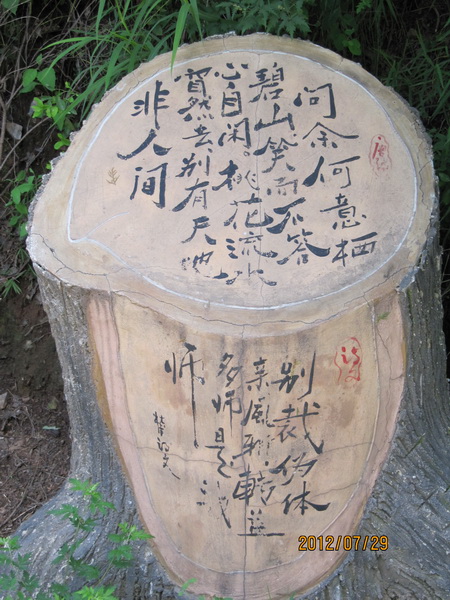 问余何意栖
碧山笑而不答
心自闲。桃花流水
窅然去别有天地
非人间
别裁伪体
亲风雅转益
多师是汝
师
2012/07/29